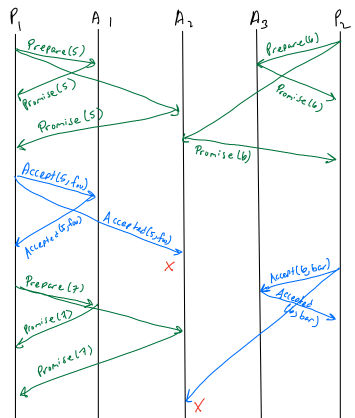 P1 A1 A2 A3 P2
Prepare(5)
Prepare(6)
Promise(5)
Promise(6)
Promise(5)
Promise(6)
Accept(5,foo)
Accepted(5,foo)
Accepted(5,foo)
X
Accept(6,bar)
Accepted
(6,bar)
Prepare(7)
Promise(7)
Promise(7)
X